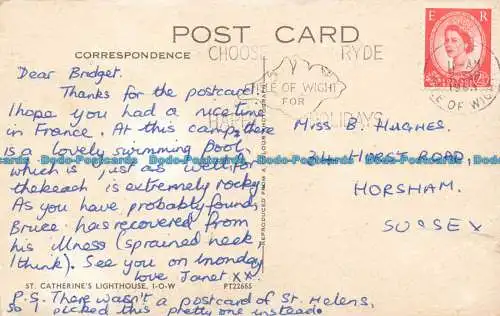 POST CARD
CORRESPONDENCE
CHOOSE RYDE
ISLE OF WIGHT
FOR
HOLIDAYS
E R
ISLE OF WIGHT
Dear Bridget.
Thanks for the postcard.
I hope you had a nice time
in France. At this camp there
is a lovely swimming pool,
which is just as well for
the beach is extremely rocky.
As you have probably found
Bruce has recovered from
his illness (sprained neek,
I think). See you on monday
love Janet xx.
Miss B. HUGHES.
HURST ROAD,
HORSHAM.
SUSSEX
ST. CATHERINE'S LIGHTHOUSE, I-O-W PT22655
P.S. There wasn't a postcard of St. Helens,
so I picked this pretty one instead.
REPRODUCED FROM A COLOUR PHOTOGRAPH
Bodo-Postcards Bodo-Postcards Bodo-Postcards